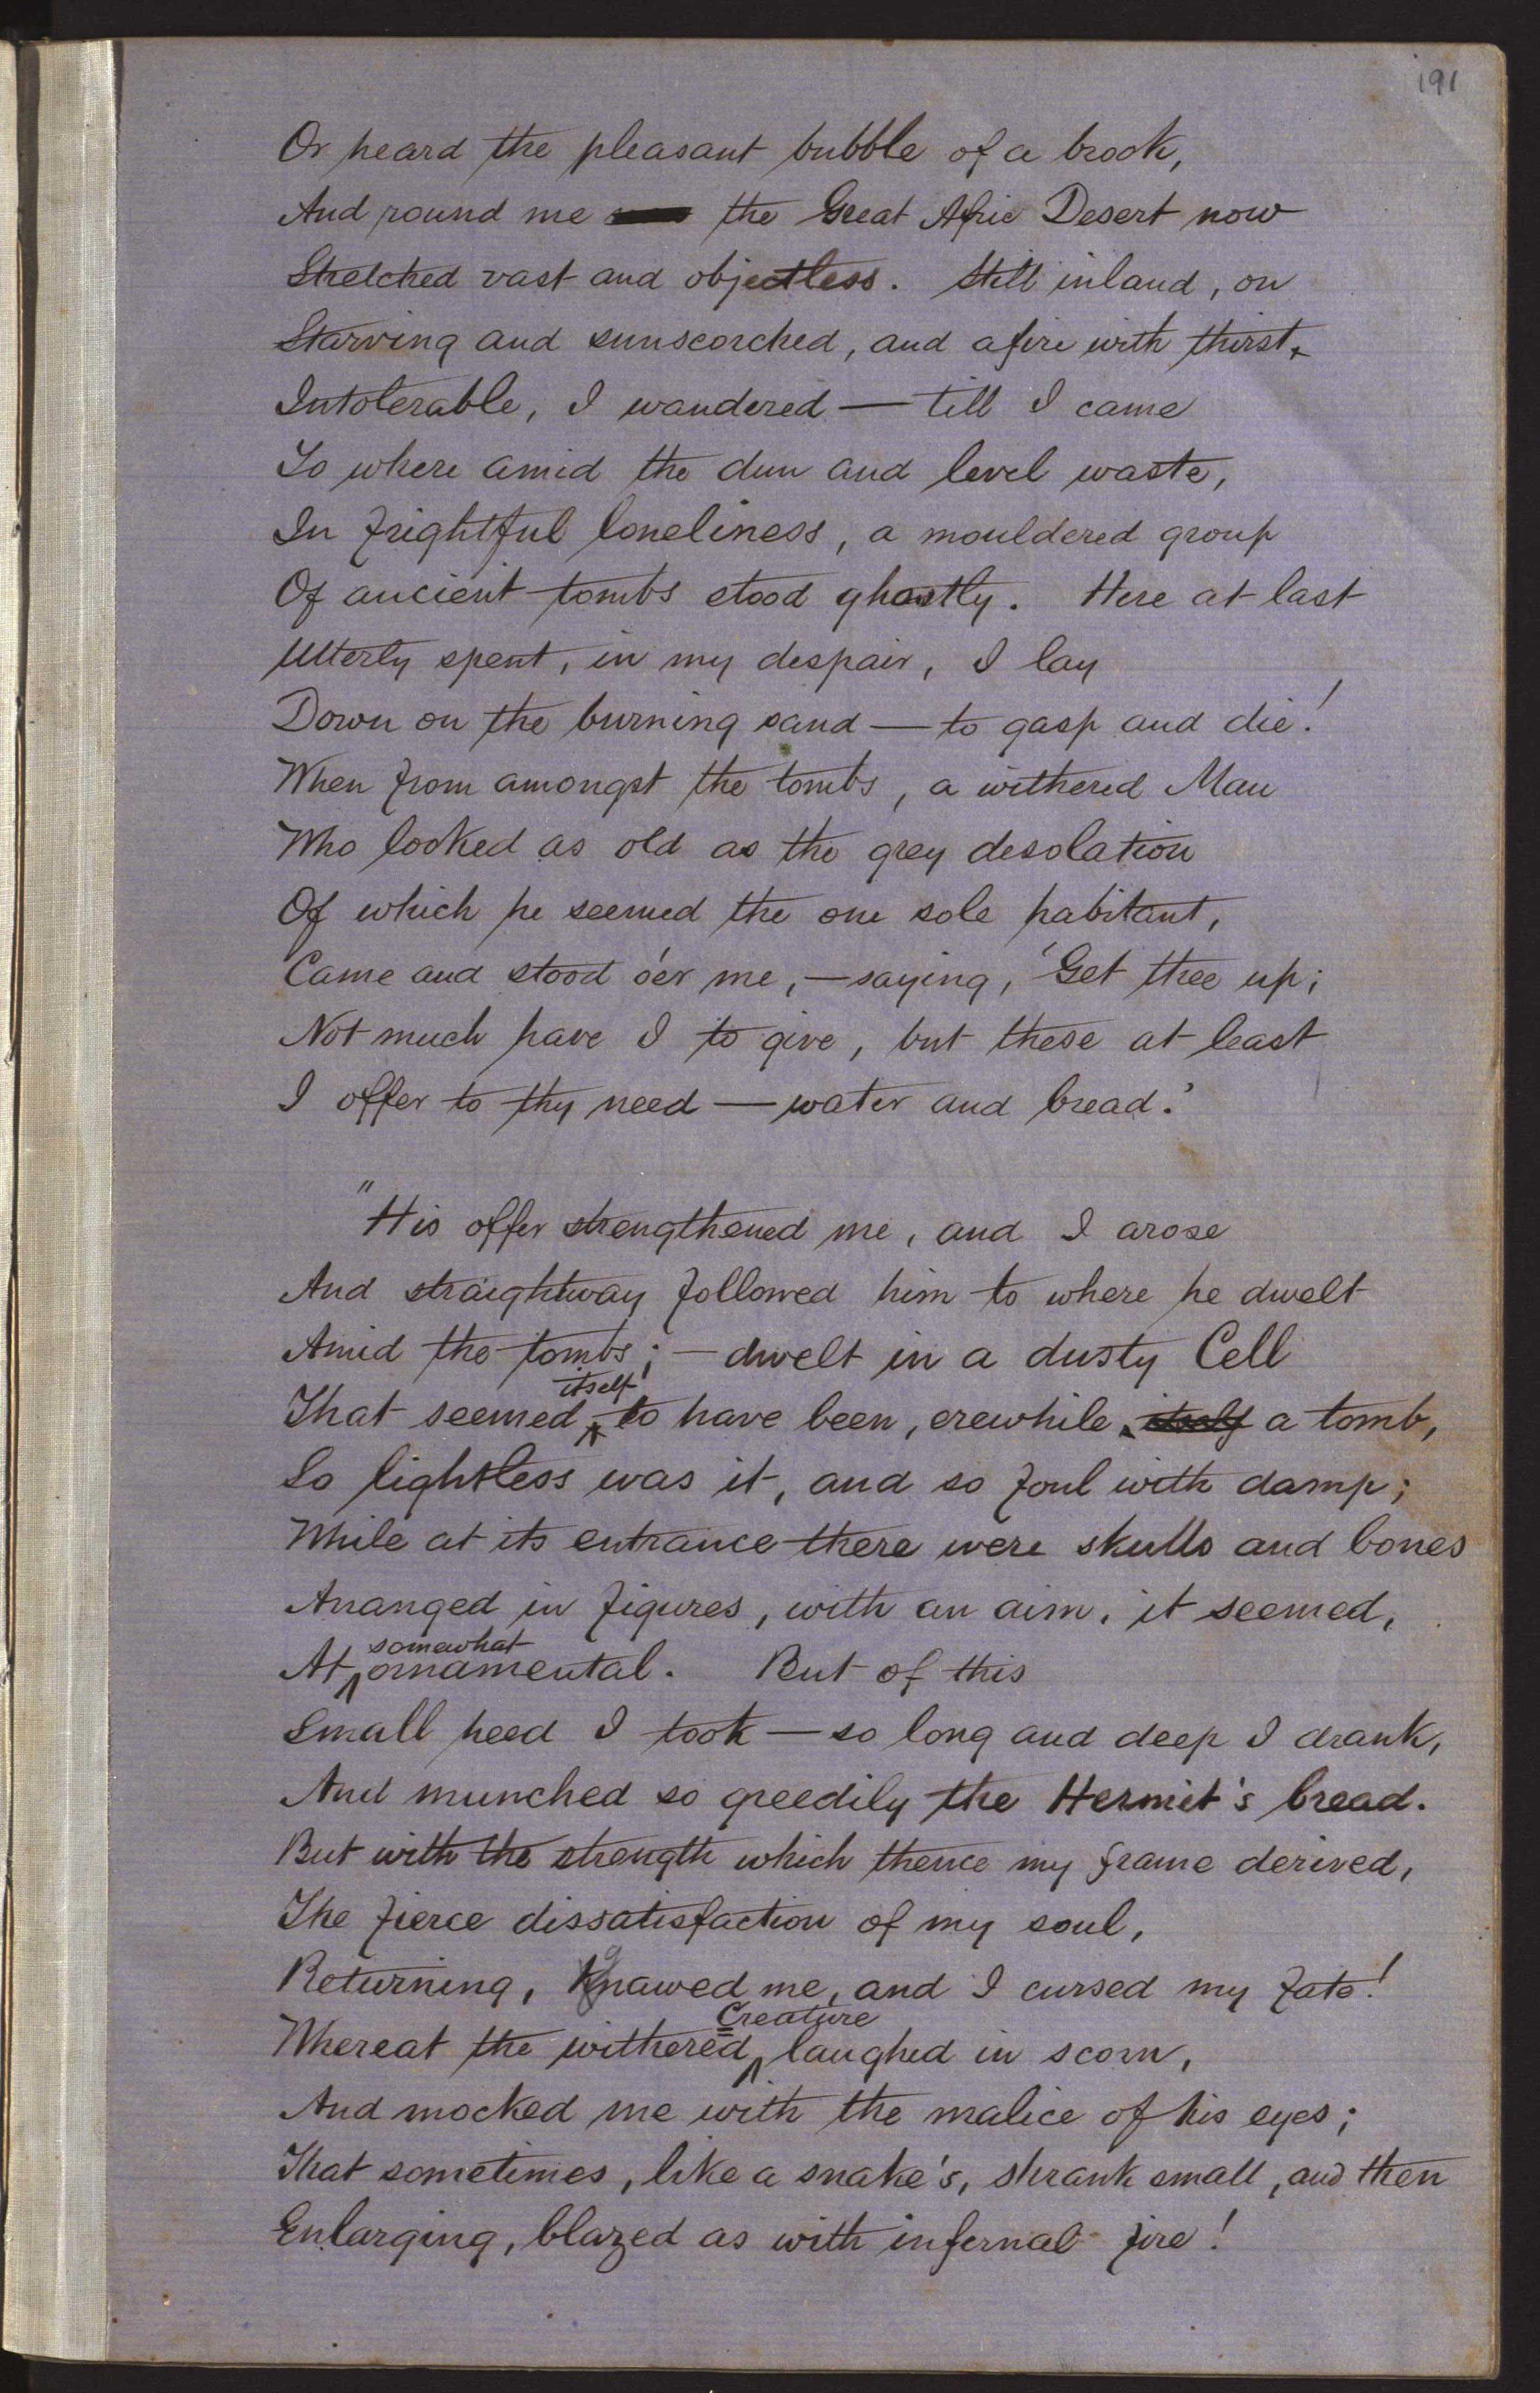 191
Or heard the pleasant bubble of a brook,
And round me the Great Afric Desert now
Stretched vast and objectless. Still inland, on
Starving and sunscorched, and afire with thirst
Intolerable, I wandered — till I came
To where amid the dun and level waste,
In frightful loneliness, a mouldered group
Of ancient tombs stood ghastly. Here at last
Utterly spent, in my despair, I lay
Down on the burning sand — to gasp and die!
When from amongst the tombs, a withered Man
Who looked as old as the grey desolation
Of which he seemed the one sole habitant,
Came and stood o'er me, — saying, 'Get thee up;
Not much have I to give, but these at least
I offer to thy need — water and bread.'
"His offer strengthened me, and I arose
And straightway followed him to where he dwelt
Amid the tombs; — dwelt in a dusty Cell
That seemed itself to have been, erewhile, itself a tomb,
So lightless was it, and so foul with damp;
While at its entrance there were skulls and bones
Arranged in figures, with an aim, it seemed,
At somewhat ornamental. But of this
Small heed I took — so long and deep I drank,
And munched so greedily the Hermit's bread.
But with the strength which thence my frame derived,
The fierce dissatisfaction of my soul,
Returning, gnawed me, and I cursed my fate!
Whereat the withered Creature laughed in scorn,
And mocked me with the malice of his eyes;
That sometimes, like a snake's, shrank small, and then
Enlarging, blazed as with infernal fire!